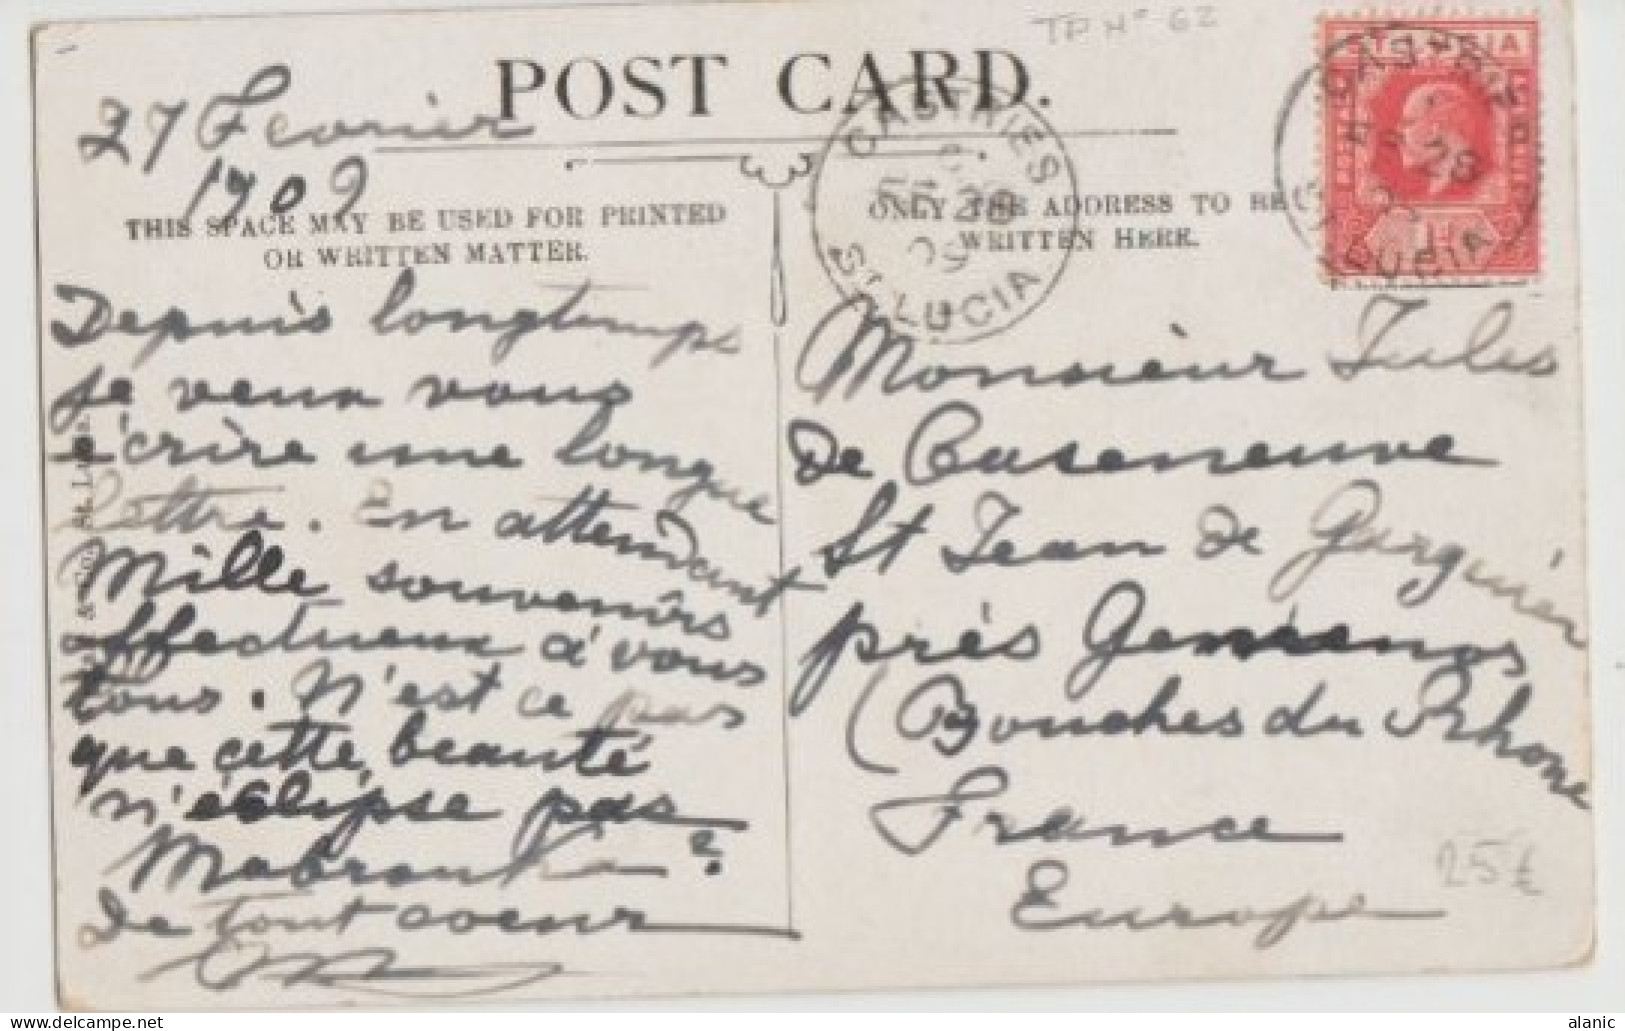 TP N° 62
POST CARD.
27 Fevrier
1909
THIS SPACE MAY BE USED FOR PRINTED
OR WRITTEN MATTER.
ONLY THE ADDRESS TO BE
WRITTEN HERE.
CASTRIES
28
09
ST LUCIA
ST LUCIA
POSTAGE
1D
Depuis longtemps
je veux vous
écrire une longue
lettre. En attendant
Mille souvenirs
affectueux à vous
tous. N'est ce pas
que cette beauté
n'éclipse pas
Mabrouka ?
De tout coeur
Monsieur Jules
de Caseneuve
St Jean de Garguier
près Gemenos
(Bouches du Rhone
France
Europe
25 €
delcampe.net
alanic